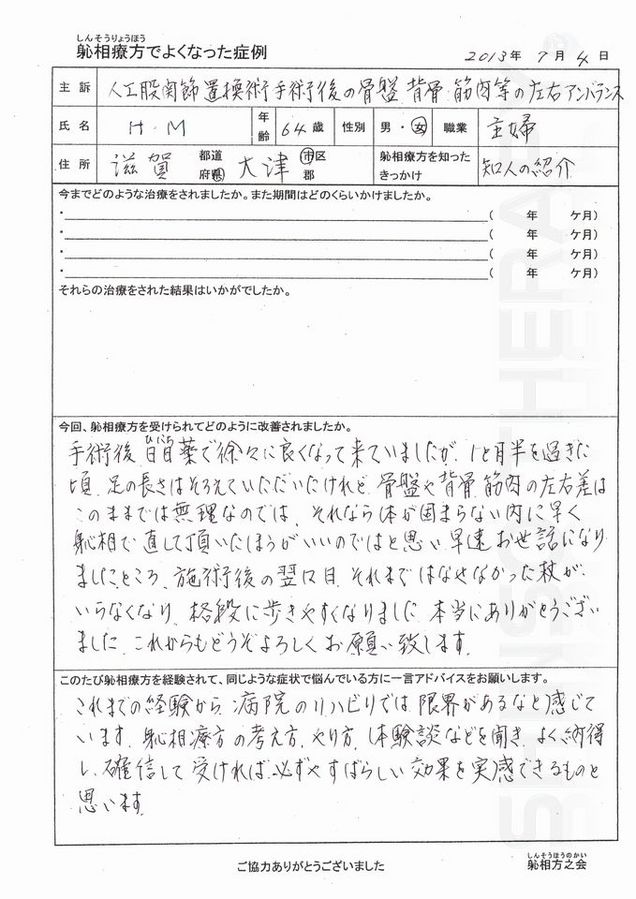 しんそうりょうほう
躰相療方でよくなった症例
2013年 7月 4日
主訴 人工股関節置換術手術後の骨盤 背骨 筋肉等の左右アンバランス
氏名 H.M 年齢 64歳 性別 男・女 職業 主婦
住所 滋賀 都道府県 大津 市区郡 躰相療方を知ったきっかけ 知人の紹介
今までどのような治療をされましたか。また期間はどのくらいかけましたか。
・ ( 年 ケ月)
・ ( 年 ケ月)
・ ( 年 ケ月)
・ ( 年 ケ月)
それらの治療をされた結果はいかがでしたか。
今回、躰相療方を受けられてどのように改善されましたか。
ひにち
手術後 日日薬で徐々に良くなって来ていましたが、1ヶ月半を過ぎた
頃、足の長さはそろえていただいたけれど、骨盤や背骨、筋肉の左右差は
このままでは無理なのでは、それなら体が固まらない内に早く
躰相で直して頂いたほうがいいのではと思い 早速 お世話になり
ましたところ、施術後の翌々日、それまではなせなかった杖が、
いらなくなり、格段に歩きやすくなりました 本当にありがとうござい
ました。これからもどうぞよろしくお願い致します。
このたび躰相療方を経験されて、同じような症状で悩んでいる方に一言アドバイスをお願いします。
これまでの経験から、病院のリハビリでは限界があるなと感じて
います。躰相療方の考え方、やり方、体験談などを聞き、よく納得
し、確信して受ければ、必ずやすばらしい効果を実感できるものと
思います。
ご協力ありがとうございました
しんそうほうのかい
躰相方之会